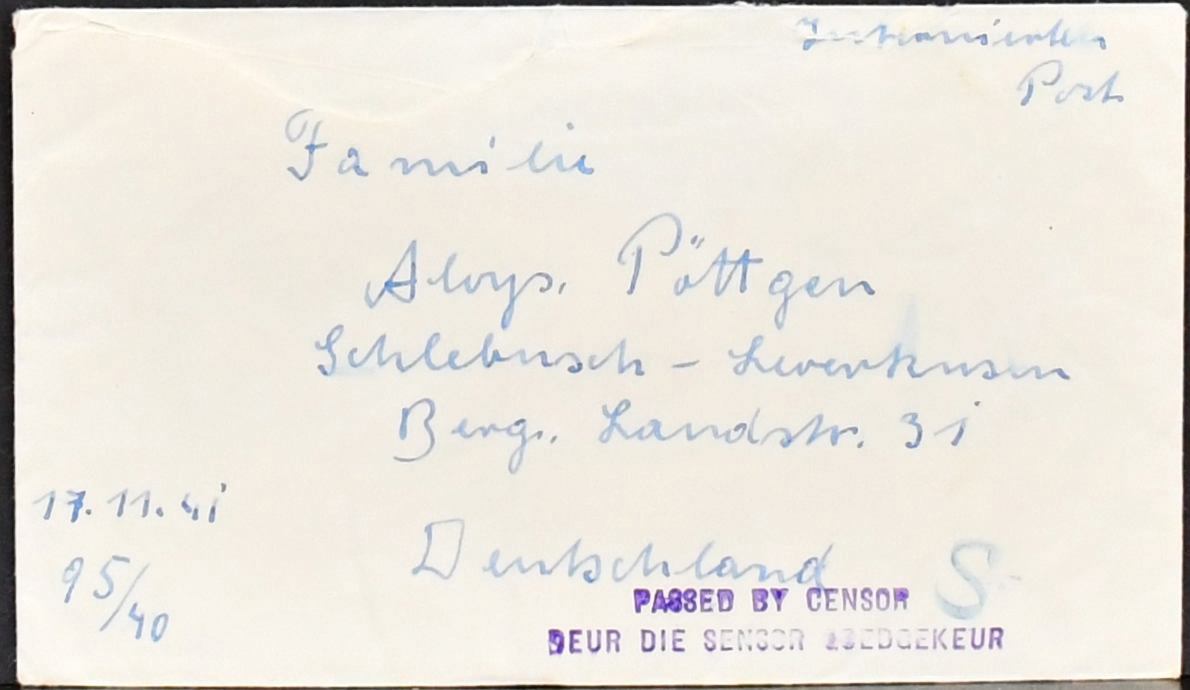 Internierten
Post
Familie
Aloys. Pöttgen
Schlebusch - Leverkusen
Berg. Landstr. 31
17.11.41
95/40
Deutschland
S
PASSED BY CENSOR
DEUR DIE SENSOR GOEDGEKEUR